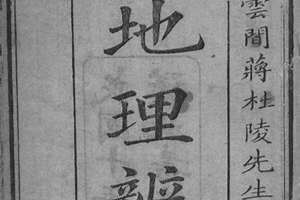 雲間蔣杜陵先生
地理辨